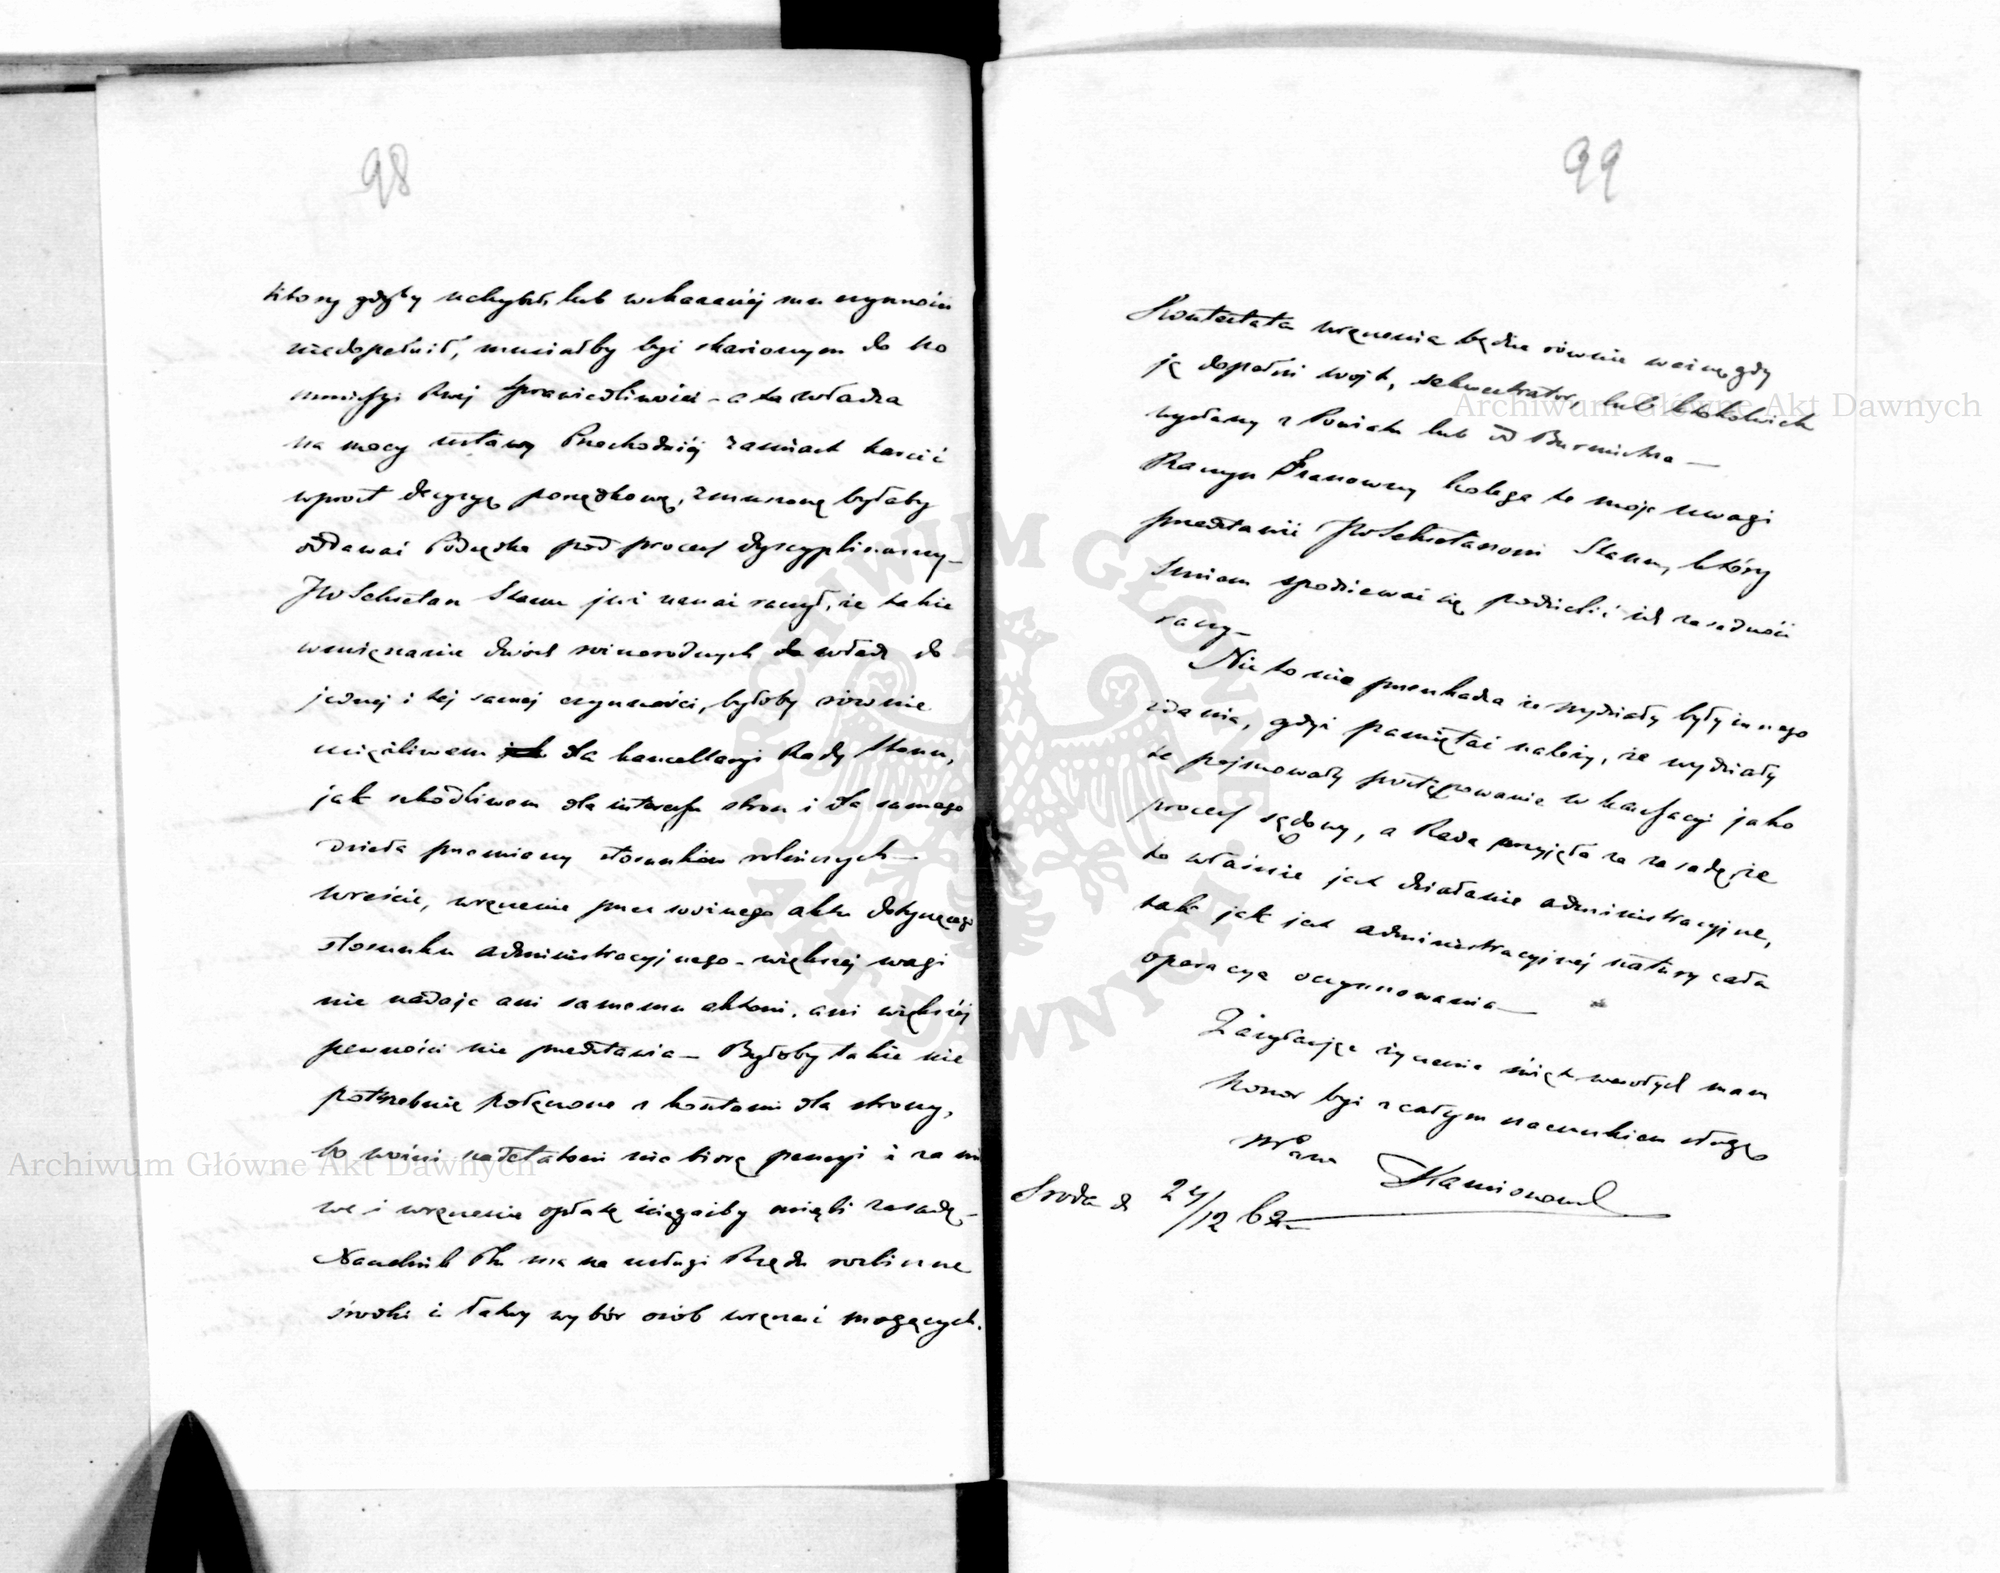 98
który gdyby uchybił, lub wskazanéj mu czynności
niedopełnił, musiałby być skarżonym do Ko
missyi Rzej Sprawiedliwości – a ta władza
na mocy ustawy Przechodniéj zamiast karcić
wprost decyzyą porządkową, zmuszoną byłaby
oddawać Podsędka pod process dyscyplinarny –
JW Sekretarz Stanu już uznać raczył, że takie
wmięszanie dwóch różnorodnych władz do
jednej i tej samej czynności, byłoby równie
uciążliwem dla kancellaryi Rady Stanu,
jak szkodliwem dla interessu stron i dla samego
dzieła przemiany stosunków rolniczych –
wreście, wręczenie przez woźnego aktu dotyczącego
stosunku administracyjnego – większej wagi
nie nadaje ani samemu aktowi, ani większéj
pewności nie przedstawia – Byłoby takie nie
potrzebnie połączone z kosztami dla strony,
bo woźni nadetatowi nie biorą pensyi i za
we i wręczenie opłatę ściągaćby mieli zasadę –
Naczelnik Ptu ma na usługi Rządu rozliczne
środki i łatwy wybór osób wręczać mogących.
99
Kontestata wręczenia będzie równie ważną, gdy
ją dopełni wójt, sekwestrator, lub ktokolwiek
wysłany z Powiatu lub od Burmistrza –
Raczysz Szanowny kolega te moje uwagi
przedstawić JW Sekretarzowi Stanu, który
Śmiem spodziewać się podzielić ich zasadność
raczy –
Nic to nie przeszkadza że wydziały były innego
zdania, gdyż pamiętać należy, że wydziały
te pojmowały postępowanie w kassacyi jako
process sądowy, a Rada przyjęła za zasadę, że
to właśnie jest działanie administracyjne,
tak jak jest administracyjnej natury cała
operacya oczynszowania –
Załączając życzenia świąt wesołych mam
honor być z całym szacunkiem sługą
WPana
Środa d 24/12 62